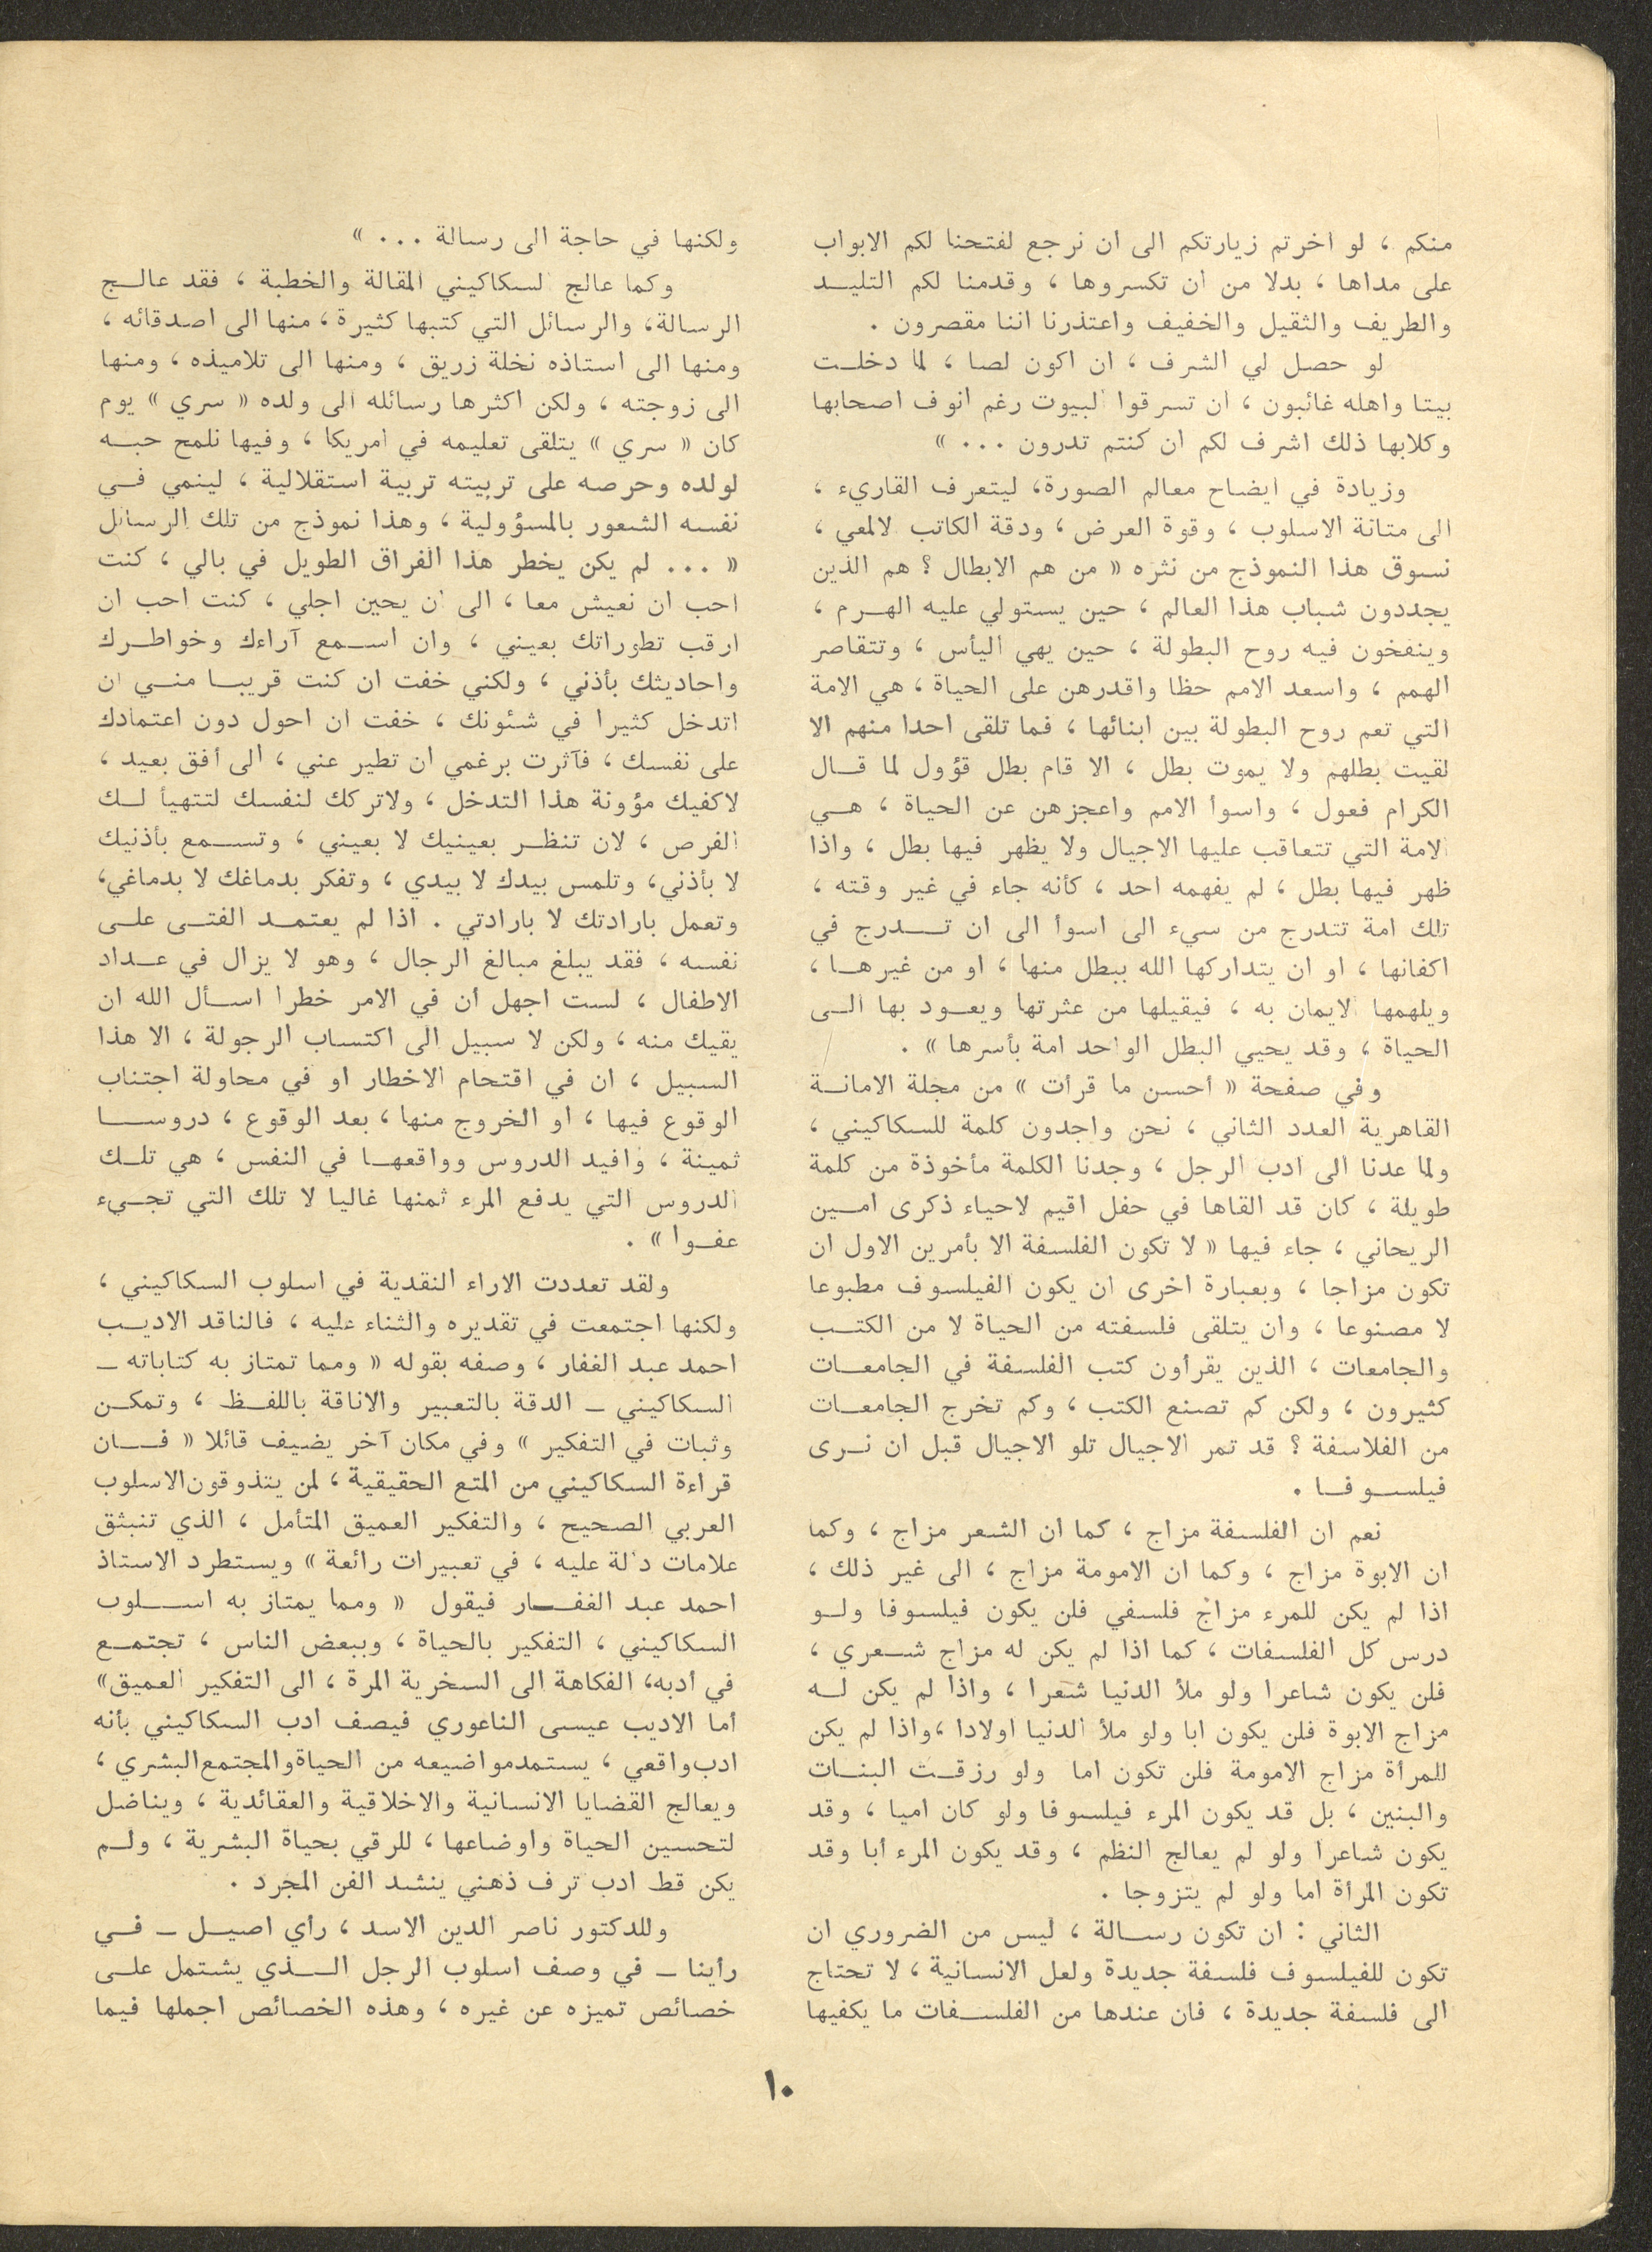 منكم ، لو اخرتم زيارتكم الى ان نرجع لفتحنا لكم الابواب
على مداها ، بدلا من ان تكسروها ، وقدمنا لكم التليد
والطريف والثقيل والخفيف واعتذرنا اننا مقصرون .
لو حصل لي الشرف ، ان اكون لصا ، لما دخلت
بيتا واهله غائبون ، ان تسرقوا البيوت رغم انوف اصحابها
وكلابها ذلك اشرف لكم ان كنتم تدرون ... »
وزيادة في ايضاح معالم الصورة، ليتعرف القاريء ،
الى متانة الاسلوب ، وقوة العرض ، ودقة الكاتب لالمعي ،
نسوق هذا النموذج من نثره « من هم الابطال ؟ هم الذين
يجددون شباب هذا العالم ، حين يستولي عليه الهرم ،
وينفخون فيه روح البطولة ، حين يهي اليأس ، وتتقاصر
الهمم ، واسعد الامم حظا واقدرهن على الحياة ، هي الامة
التي تعم روح البطولة بين ابنائها ، فما تلقى احدا منهم الا
لقيت بطلهم ولا يموت بطل ، الا قام بطل قؤول لما قال
الكرام فعول ، واسوأ الامم واعجزهن عن الحياة ، هي
الامة التي تتعاقب عليها الاجيال ولا يظهر فيها بطل ، واذا
ظهر فيها بطل ، لم يفهمه احد ، كأنه جاء في غير وقته ،
تلك امة تتدرج من سيء الى اسوأ الى ان تدرج في
اكفانها ، او ان يتداركها الله ببطل منها ، او من غيرها ،
ويلهمها الايمان به ، فيقيلها من عثرتها ويعود بها الى
الحياة ، وقد يحيي البطل الواحد امة بأسرها » .
وفي صفحة « أحسن ما قرأت » من مجلة الامانة
القاهرية العدد الثاني ، نحن واجدون كلمة للسكاكيني ،
ولما عدنا الى ادب الرجل ، وجدنا الكلمة مأخوذة من كلمة
طويلة ، كان قد القاها في حفل اقيم لاحياء ذكرى امين
الريحاني ، جاء فيها « لا تكون الفلسفة الا بأمرين الاول ان
تكون مزاجا ، وبعبارة اخرى ان يكون الفيلسوف مطبوعا
لا مصنوعا ، وان يتلقى فلسفته من الحياة لا من الكتب
والجامعات ، الذين يقرأون كتب الفلسفة في الجامعات
كثيرون ، ولكن كم تصنع الكتب ، وكم تخرج الجامعات
من الفلاسفة ؟ قد تمر الاجيال تلو الاجيال قبل ان نرى
فيلسوفا .
نعم ان الفلسفة مزاج ، كما ان الشعر مزاج ، وكما
ان الابوة مزاج ، وكما ان الامومة مزاج ، الى غير ذلك ،
اذا لم يكن للمرء مزاج فلسفي فلن يكون فيلسوفا ولو
درس كل الفلسفات ، كما اذا لم يكن له مزاج شعري ،
فلن يكون شاعرا ولو ملأ الدنيا شعرا ، واذا لم يكن له
مزاج الابوة فلن يكون ابا ولو ملأ الدنيا اولادا ،واذا لم يكن
للمرأة مزاج الامومة فلن تكون اما ولو رزقت البنات
والبنين ، بل قد يكون المرء فيلسوفا ولو كان اميا ، وقد
يكون شاعرا ولو لم يعالج النظم ، وقد يكون المرء أبا وقد
تكون المرأة اما ولو لم يتزوجا .
الثاني : ان تكون رسالة ، ليس من الضروري ان
تكون للفيلسوف فلسفة جديدة ولعل الانسانية ، لا تحتاج
الى فلسفة جديدة ، فان عندها من الفلسفات ما يكفيها
ولكنها في حاجة الى رسالة ... »
وكما عالج السكاكيني المقالة والخطبة ، فقد عالج
الرسالة، والرسائل التي كتبها كثيرة، منها الى اصدقائه ،
ومنها الى استاذه نخلة زريق ، ومنها الى تلاميذه ، ومنها
الى زوجته ، ولكن اكثرها رسائله الى ولده « سري » يوم
كان « سري » يتلقى تعليمه في امريكا ، وفيها نلمح حبه
لولده وحرصه على تربيته تربية استقلالية ، لينمي في
نفسه الشعور بالمسؤولية ، وهذا نموذج من تلك الرسائل
« ... لم يكن يخطر هذا الفراق الطويل في بالي ، كنت
احب ان نعيش معا ، الى ان يحين اجلي ، كنت احب ان
ارقب تطوراتك بعيني ، وان اسمع آراءك وخواطرك
واحاديثك بأذني ، ولكني خفت ان كنت قريبا مني ان
اتدخل كثيرا في شئونك ، خفت ان احول دون اعتمادك
على نفسك ، فآثرت برغمي ان تطير عني ، الى أفق بعيد ،
لاكفيك مؤونة هذا التدخل ، ولاتركك لنفسك لتتهيأ لك
الفرص ، لان تنظر بعينيك لا بعيني ، وتسمع بأذنيك
لا بأذني، وتلمس بيدك لا بيدي ، وتفكر بدماغك لا بدماغي،
وتعمل بارادتك لا بارادتي . اذا لم يعتمد الفتى على
نفسه ، فقد يبلغ مبالغ الرجال ، وهو لا يزال في عداد
الاطفال ، لست اجهل ان في الامر خطرا اسأل الله ان
يقيك منه ، ولكن لا سبيل الى اكتساب الرجولة ، الا هذا
السبيل ، ان في اقتحام الاخطار او في محاولة اجتناب
الوقوع فيها ، او الخروج منها ، بعد الوقوع ، دروسا
ثمينة ، وافيد الدروس وواقعها في النفس ، هي تلك
الدروس التي يدفع المرء ثمنها غاليا لا تلك التي تجيء
عفوا » .
ولقد تعددت الاراء النقدية في اسلوب السكاكيني ،
ولكنها اجتمعت في تقديره والثناء عليه ، فالناقد الاديب
احمد عبد الغفار ، وصفه بقوله « ومما تمتاز به كتاباته ــ
السكاكيني ــ الدقة بالتعبير والاناقة باللفظ ، وتمكن
وثبات في التفكير » وفي مكان آخر يضيف قائلا « فان
قراءة السكاكيني من المتع الحقيقية ، لمن يتذوقون الاسلوب
العربي الصحيح ، والتفكير العميق المتأمل ، الذي تنبثق
علامات دالة عليه ، في تعبيرات رائعة » ويستطرد الاستاذ
احمد عبد الغفار فيقول « ومما يمتاز به اسلوب
السكاكيني ، التفكير بالحياة ، وببعض الناس ، تجتمع
في أدبه، الفكاهة الى السخرية المرة ، الى التفكير العميق»
أما الاديب عيسى الناعوري فيصف ادب السكاكيني بأنه
ادب واقعي ، يستمد مواضيعه من الحياة والمجتمع البشري ،
ويعالج القضايا الانسانية والاخلاقية والعقائدية ، ويناضل
لتحسين الحياة واوضاعها ، للرقي بحياة البشرية ، ولم
يكن قط ادب ترف ذهني ينشد الفن المجرد .
وللدكتور ناصر الدين الاسد ، رأي اصيل ــ في
رأينا ــ في وصف اسلوب الرجل الذي يشتمل على
خصائص تميزه عن غيره ، وهذه الخصائص اجملها فيما
١٠